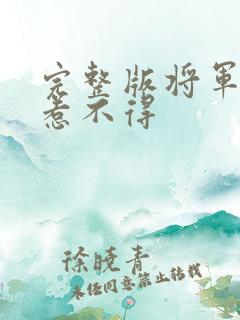 完整版将军
惹不得
徐晓青
未经同意禁止转载